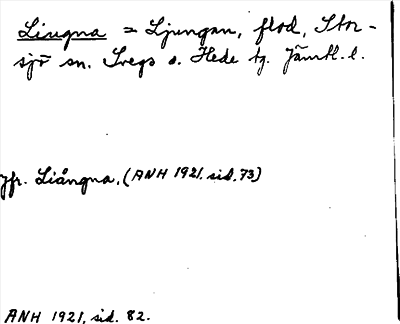 Liugna = Ljungan, flod, Stor-
sjö sn. Svegs o. Hede tg. Jämtl. l.
Jfr. Liångna, (ANH 1921, sid. 73)
ANH 1921, sid. 82.